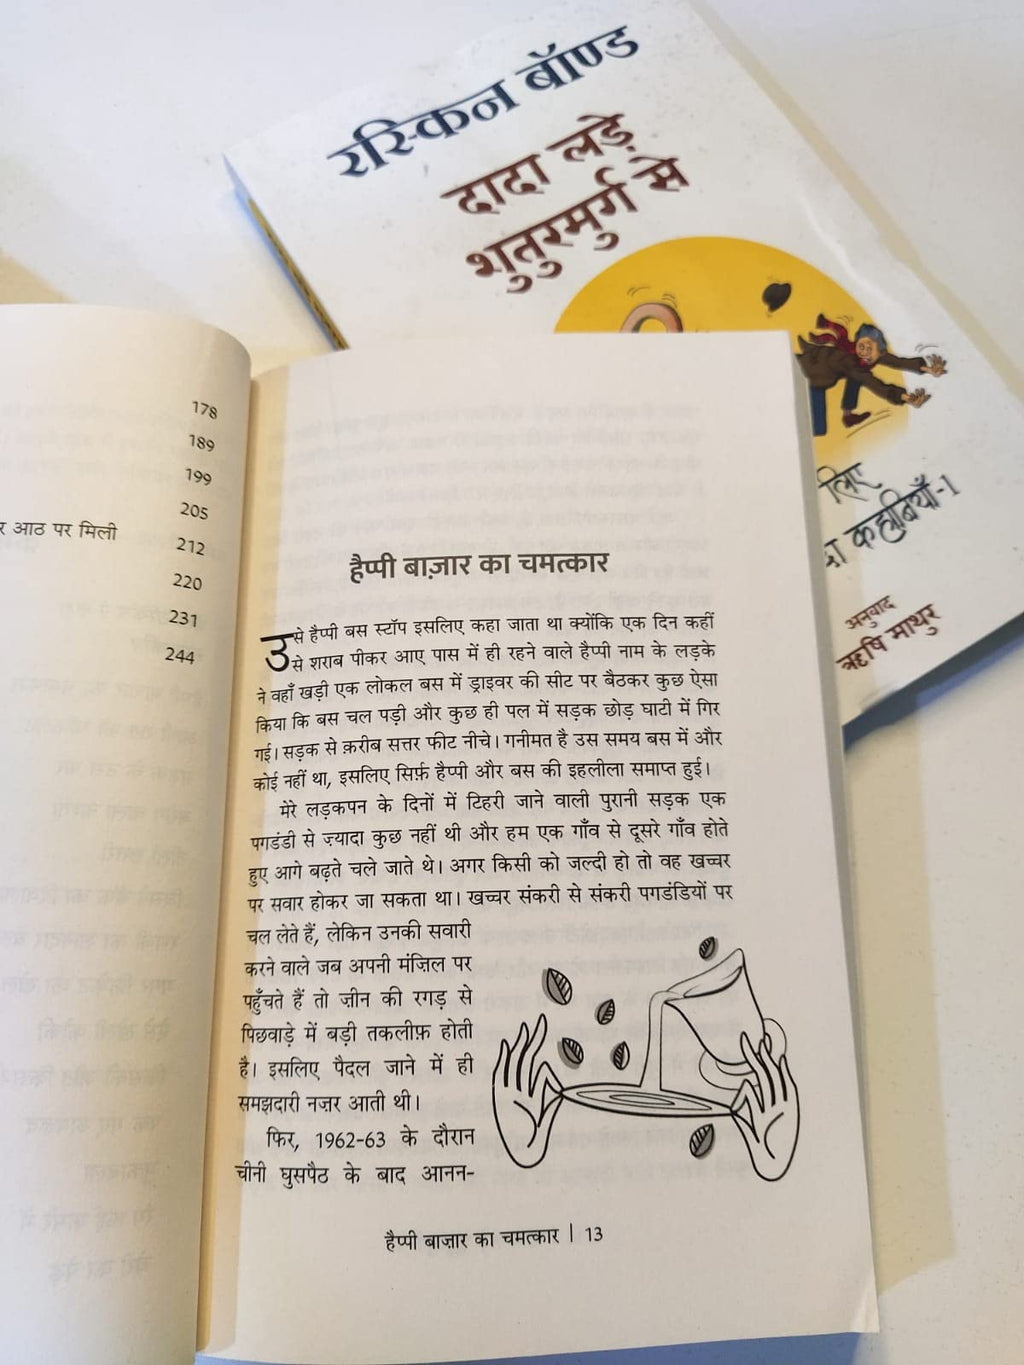 रस्किन बॉण्ड
दादा लड़े
शुतुरमुर्ग से
लिए
कहानियाँ-1
अनुवाद
ऋषि माथुर
178
189
199
205
आठ पर मिली 212
220
231
244
हैप्पी बाज़ार का चमत्कार
उसे हैप्पी बस स्टॉप इसलिए कहा जाता था क्योंकि एक दिन कहीं
से शराब पीकर आए पास में ही रहने वाले हैप्पी नाम के लड़के
ने वहाँ खड़ी एक लोकल बस में ड्राइवर की सीट पर बैठकर कुछ ऐसा
किया कि बस चल पड़ी और कुछ ही पल में सड़क छोड़ घाटी में गिर
गई। सड़क से क़रीब सत्तर फीट नीचे। गनीमत है उस समय बस में और
कोई नहीं था, इसलिए सिर्फ़ हैप्पी और बस की इहलीला समाप्त हुई।
मेरे लड़कपन के दिनों में टिहरी जाने वाली पुरानी सड़क एक
पगडंडी से ज़्यादा कुछ नहीं थी और हम एक गाँव से दूसरे गाँव होते
हुए आगे बढ़ते चले जाते थे। अगर किसी को जल्दी हो तो वह खच्चर
पर सवार होकर जा सकता था। खच्चर संकरी से संकरी पगडंडियों पर
चल लेते हैं, लेकिन उनकी सवारी
करने वाले जब अपनी मंज़िल पर
पहुँचते हैं तो ज़ीन की रगड़ से
पिछवाड़े में बड़ी तकलीफ़ होती
है। इसलिए पैदल जाने में ही
समझदारी नज़र आती थी।
फिर, 1962-63 के दौरान
चीनी घुसपैठ के बाद आनन-
हैप्पी बाज़ार का चमत्कार | 13